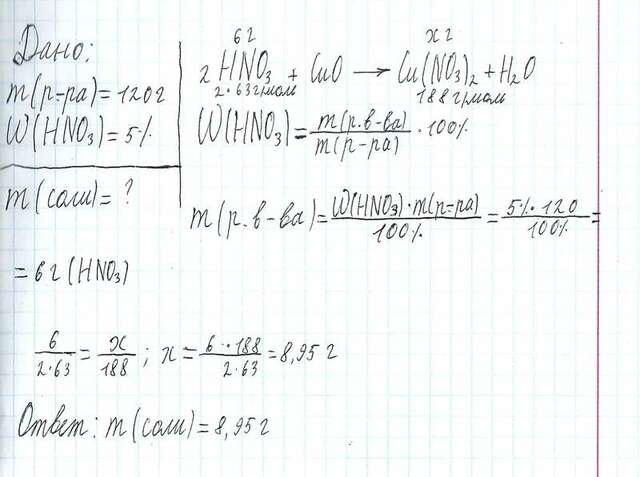 Дано:
m(р-ра)=120г
W(HNO₃)=5%
m(соли)=?
6г xг
2HNO₃ + CuO → Cu(NO₃)₂ + H₂O
2·63г/моль 188г/моль
W(HNO₃)= m(р.в-ва)/m(р-ра) · 100%
m(р.в-ва)= W(HNO₃)·m(р-ра)/100% = 5%·120/100% =
= 6г (HNO₃)
6/2·63 = x/188 ; x = 6·188/2·63 = 8,95 г
Ответ: m(соли)=8,95г